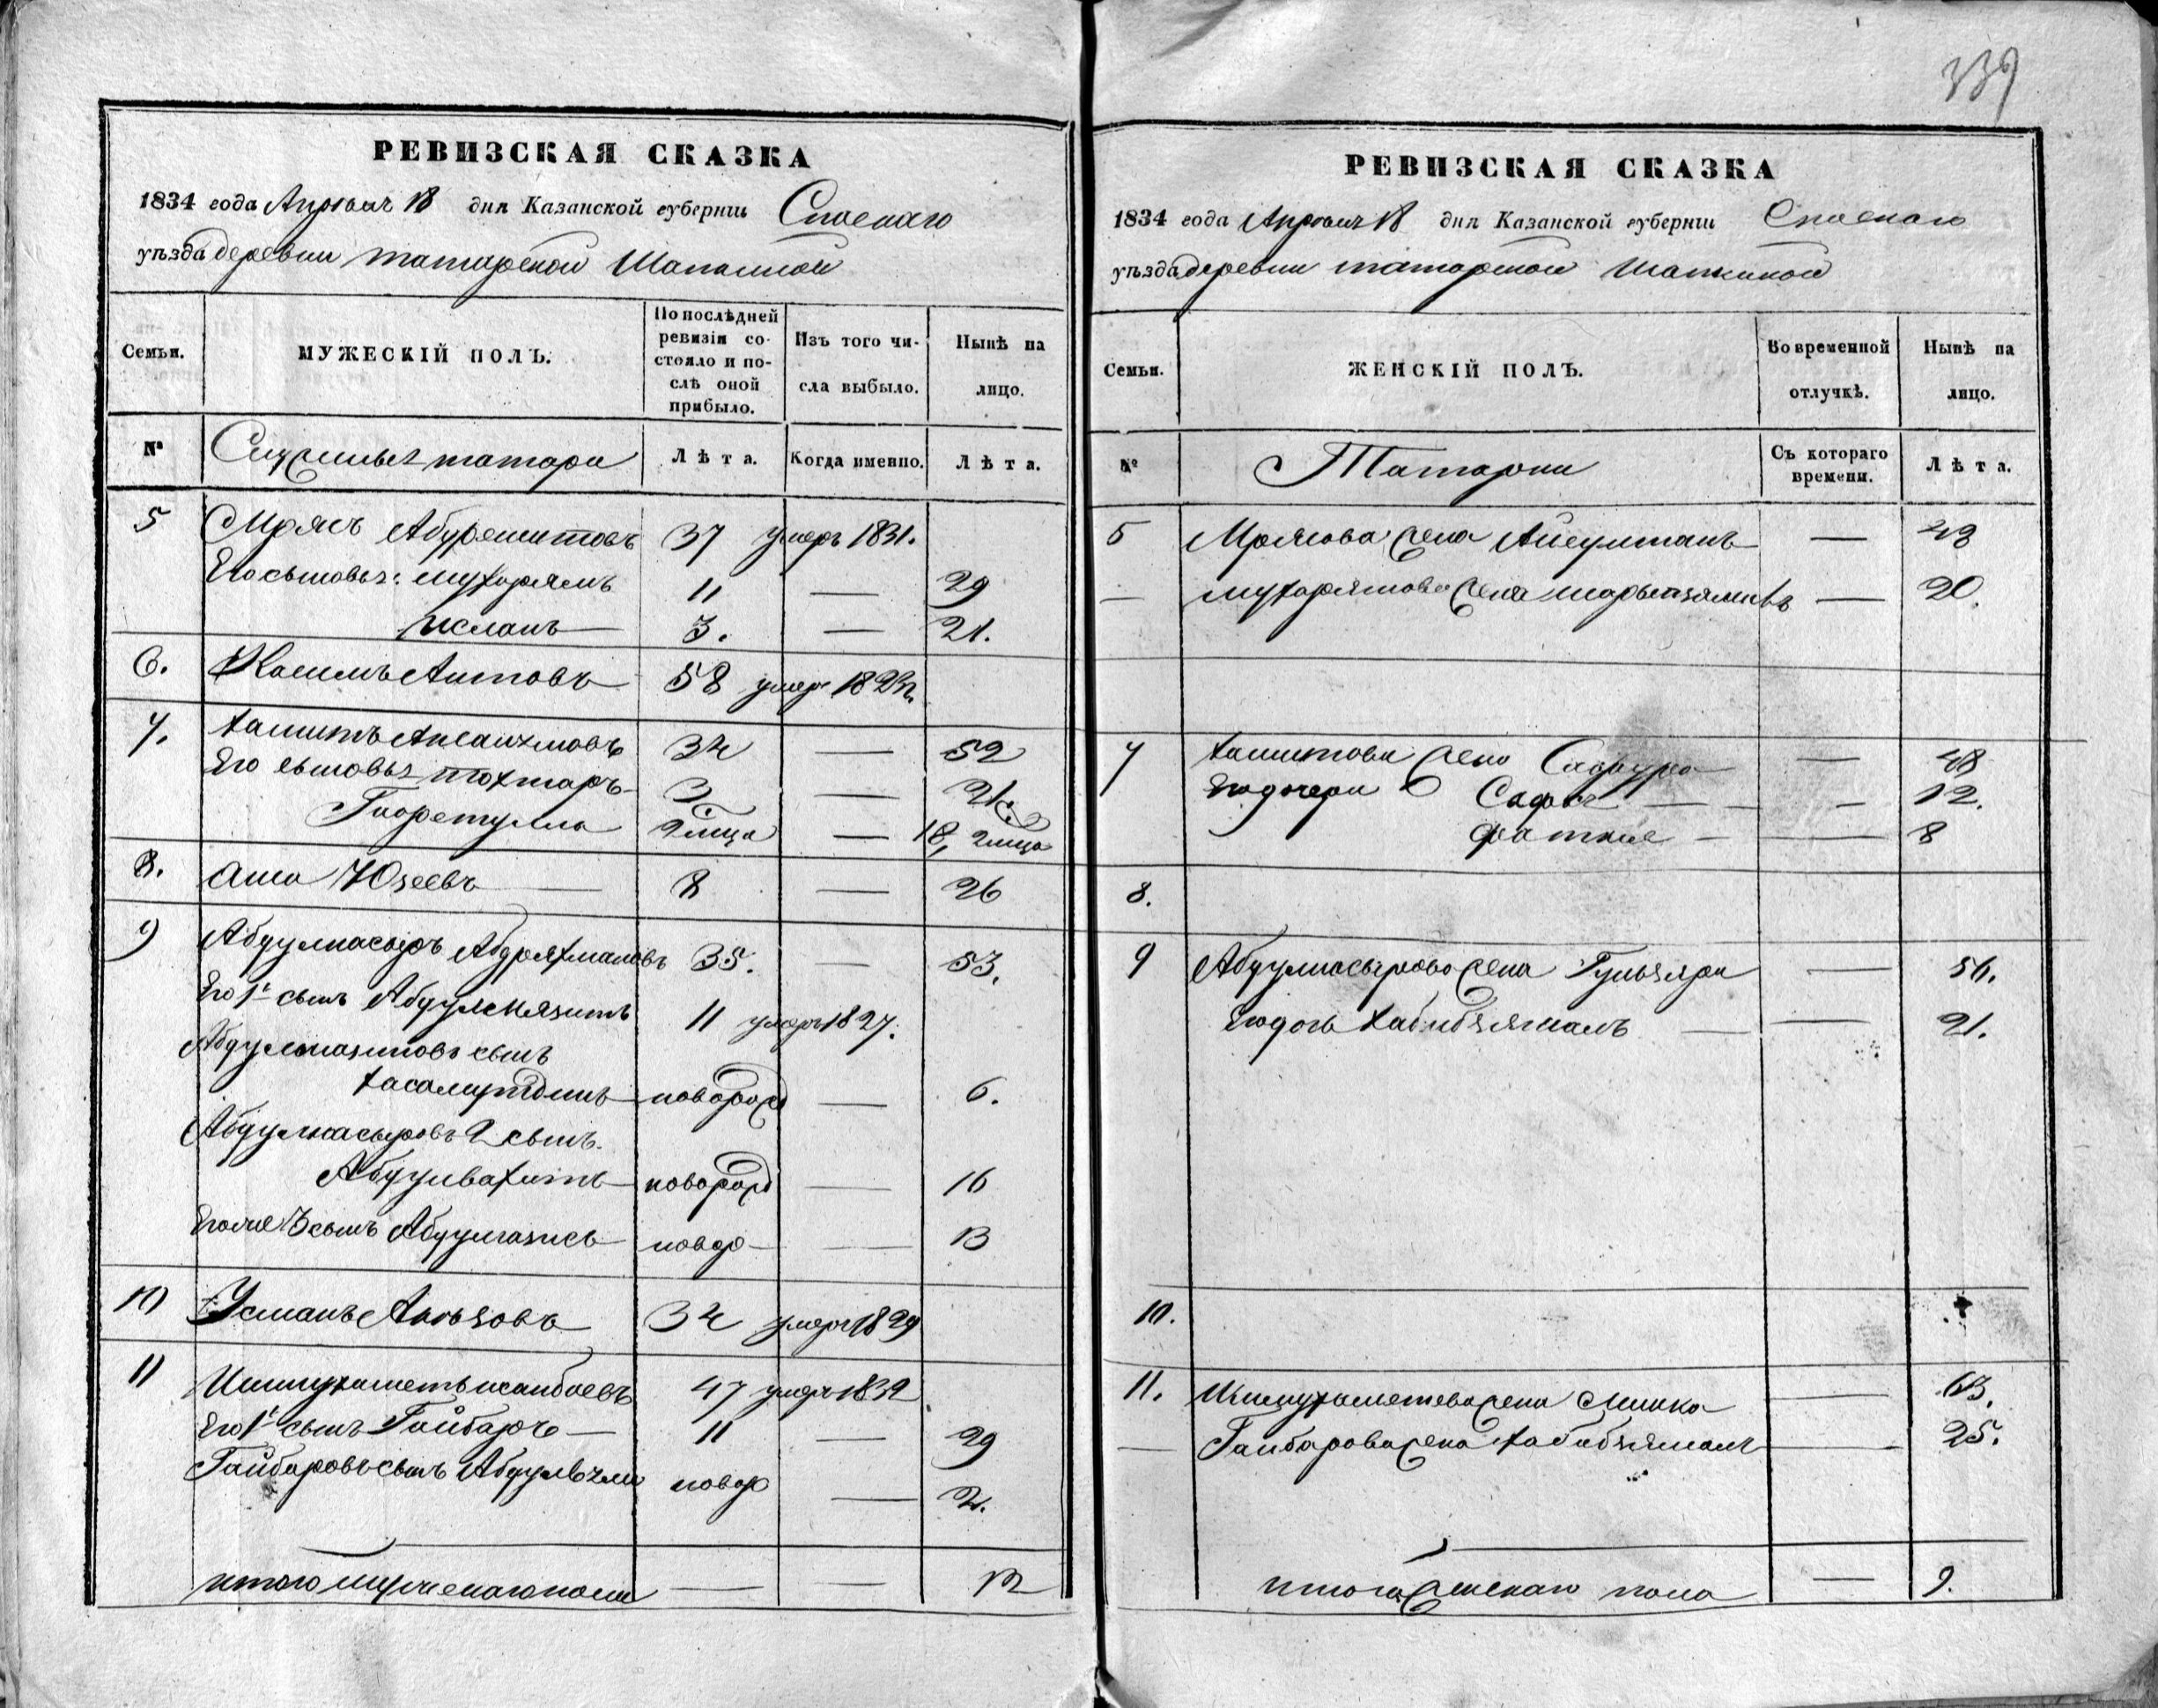 339
РЕВИЗСКАЯ СКАЗКА
1834 года Апрѣля 18 дня Казанской губерніи Спаскаго
уѣзда деревни татарской Шапкиной
Семьи.
МУЖЕСКІЙ ПОЛЪ.
По послѣдней ревизіи состояло и послѣ оной прибыло.
Изъ того числа выбыло.
Нынѣ на лицо.
№ татары Лѣта. Когда именно. Лѣта.
5 Мрясъ Абдрешитовъ 37 умеръ 1831.
Его сыновья: Мухорямъ 11 — 29
Исланъ 3. — 21.
6. Касимъ Аитовъ 58 умеръ
7. Хашитъ 34 — 52
Его сыновья Тохтаръ 3 — 21.
2 лица — 18, 2 лица
8. Аиса Юзеевъ 8 — 26
9 Абдулнасыръ Абдряхмановъ 35. — 53.
Его 1й сынъ 11 умеръ 1827.
сынъ
Хасамутдинъ новорож — 6.
Абдулнасыровъ 2 сынъ.
Абдулвахитъ новорож — 16
Его же 3 сынъ Абдулгазисъ новор — 13
10 Усманъ Аюповъ 34 умеръ 1829
11 Ишмухаметь Исанбаевъ 47 умеръ 1832
Его 1й сынъ Гайбаръ — 11 — 29
Гайбаровъ сынъ новор — 2.
итого мужескаго пола — — 12
РЕВИЗСКАЯ СКАЗКА
1834 года Апрѣля 18 дня Казанской губерніи Спаскаго
уѣзда деревни татарской Шапкиной
Семьи.
ЖЕНСКІЙ ПОЛЪ.
Во временной отлучкѣ.
Нынѣ на лицо.
№ Татарки Съ котораго времени. Лѣта.
5 Мрясова жена Айсултанъ — 43
— Мухорямова жена — 20.
7 Хашитова жена — 48
Его дочери — 12.
Фаткия — 8
8.
9 Абдулнасырова жена Гульзяри — 56.
Его дочь Хабибзямалъ — 21.
10.
11. Ишмухаметева жена Минка — 63.
— Гайбарова жена Хабибзямалъ — 25.
итого женскаго пола — 9.